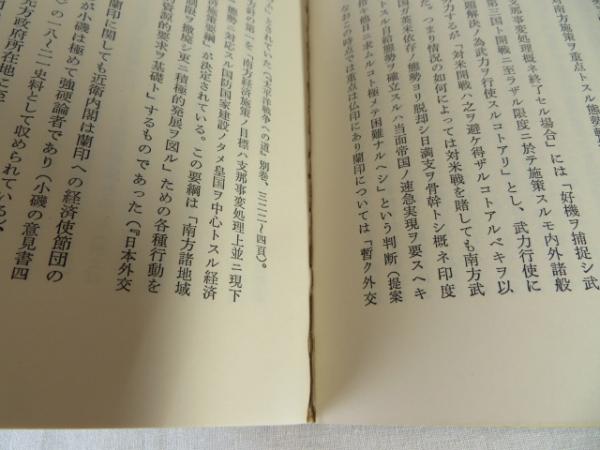 対南方施策ヲ重点トスル態勢転
支那事変処理概ネ終了セル場合」には「好機ヲ捕捉シ武
第三国ト開戦ニ至ラザル限度ニ於テ施策スルモ内外諸般
題解決ノ為武力ヲ行使スルコトアリ」とし、武力行使に
力するが「対米開戦ハ之ヲ避ケ得ザルコトアルベキヲ以
た。つまり情況の如何によっては対米戦を賭しても南方武
国ガ英米依存ノ態勢ヨリ脱却シ日満支ヲ骨幹トシ概ネ印度
トスル自給態勢ヲ確立スルハ当面帝国ノ速急実現ヲ要スヘキ
ヲ他日ニ求ムルコト極メテ困難ナルヘシ」という判断(提案
なおこの時点では重点は仏印にあり蘭印については「暫ク外交
ム」とされていた(『太平洋戦争への道』別巻、三二二〜四頁)。
方針の第一を「南方経済施策ノ目標ハ支那事変処理上並ニ現下
ノ態勢ニ対応スル国防国家建設ノタメ皇国ヲ中心トスル経済
施策要綱」が決定されている。この要綱は「南方諸地域
限ヲ撤廃シ更ニ積極的発展ヲ図ル」ための各種行動を
資源的要求ヲ基礎ト」するものであった(『日本外交
蘭印に関しても近衛内閣は蘭印への経済使節団の
が小磯は極めて強硬論者であり(小磯の意見書四
の一八〜二一史料として収められている、
方政府所在地に至